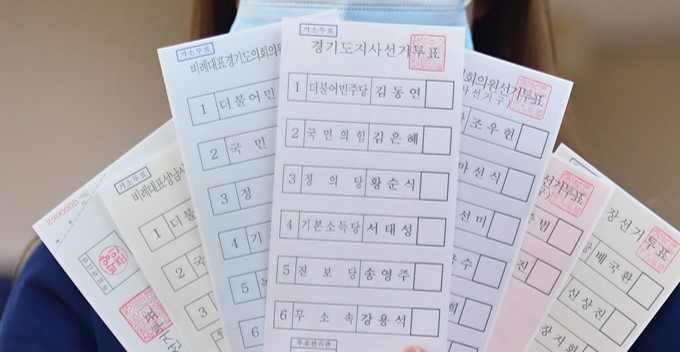 거소투표
경기도지사선거투표
1 더불어민주당 김동연
2 국민의힘 김은혜
3 정의당 황순식
4 기본소득당 서태성
5 진보당 송영주
6 무소속 강용석
투표관리관
거소투표
비례대표경기도의회의원
1 더불어민
2 국민
3 정
4 기
5
6
거소투표
비례대표성남시
1 더불
2 국
3
4
5
0000062
회의원선거투표
선거구)
조우현
마선식
선미
수
희
투표
범
진
장선거투표
배국환
신상진
장지화